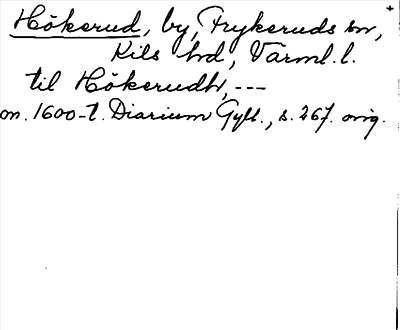 Hökerud, by, Frykeruds sn,
Kils hd, Värml. l.
til Hökerudh, ---
om. 1600-t. Diarium Gyll., s. 267. orig.